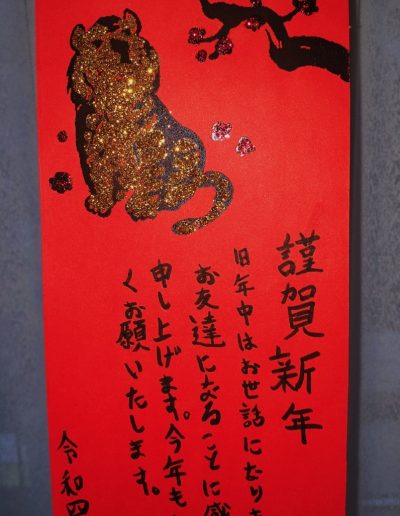 謹賀新年
旧年中はお世話になりま
お友達になることに感
申し上げます。今年も
くお願いたします。
令和四